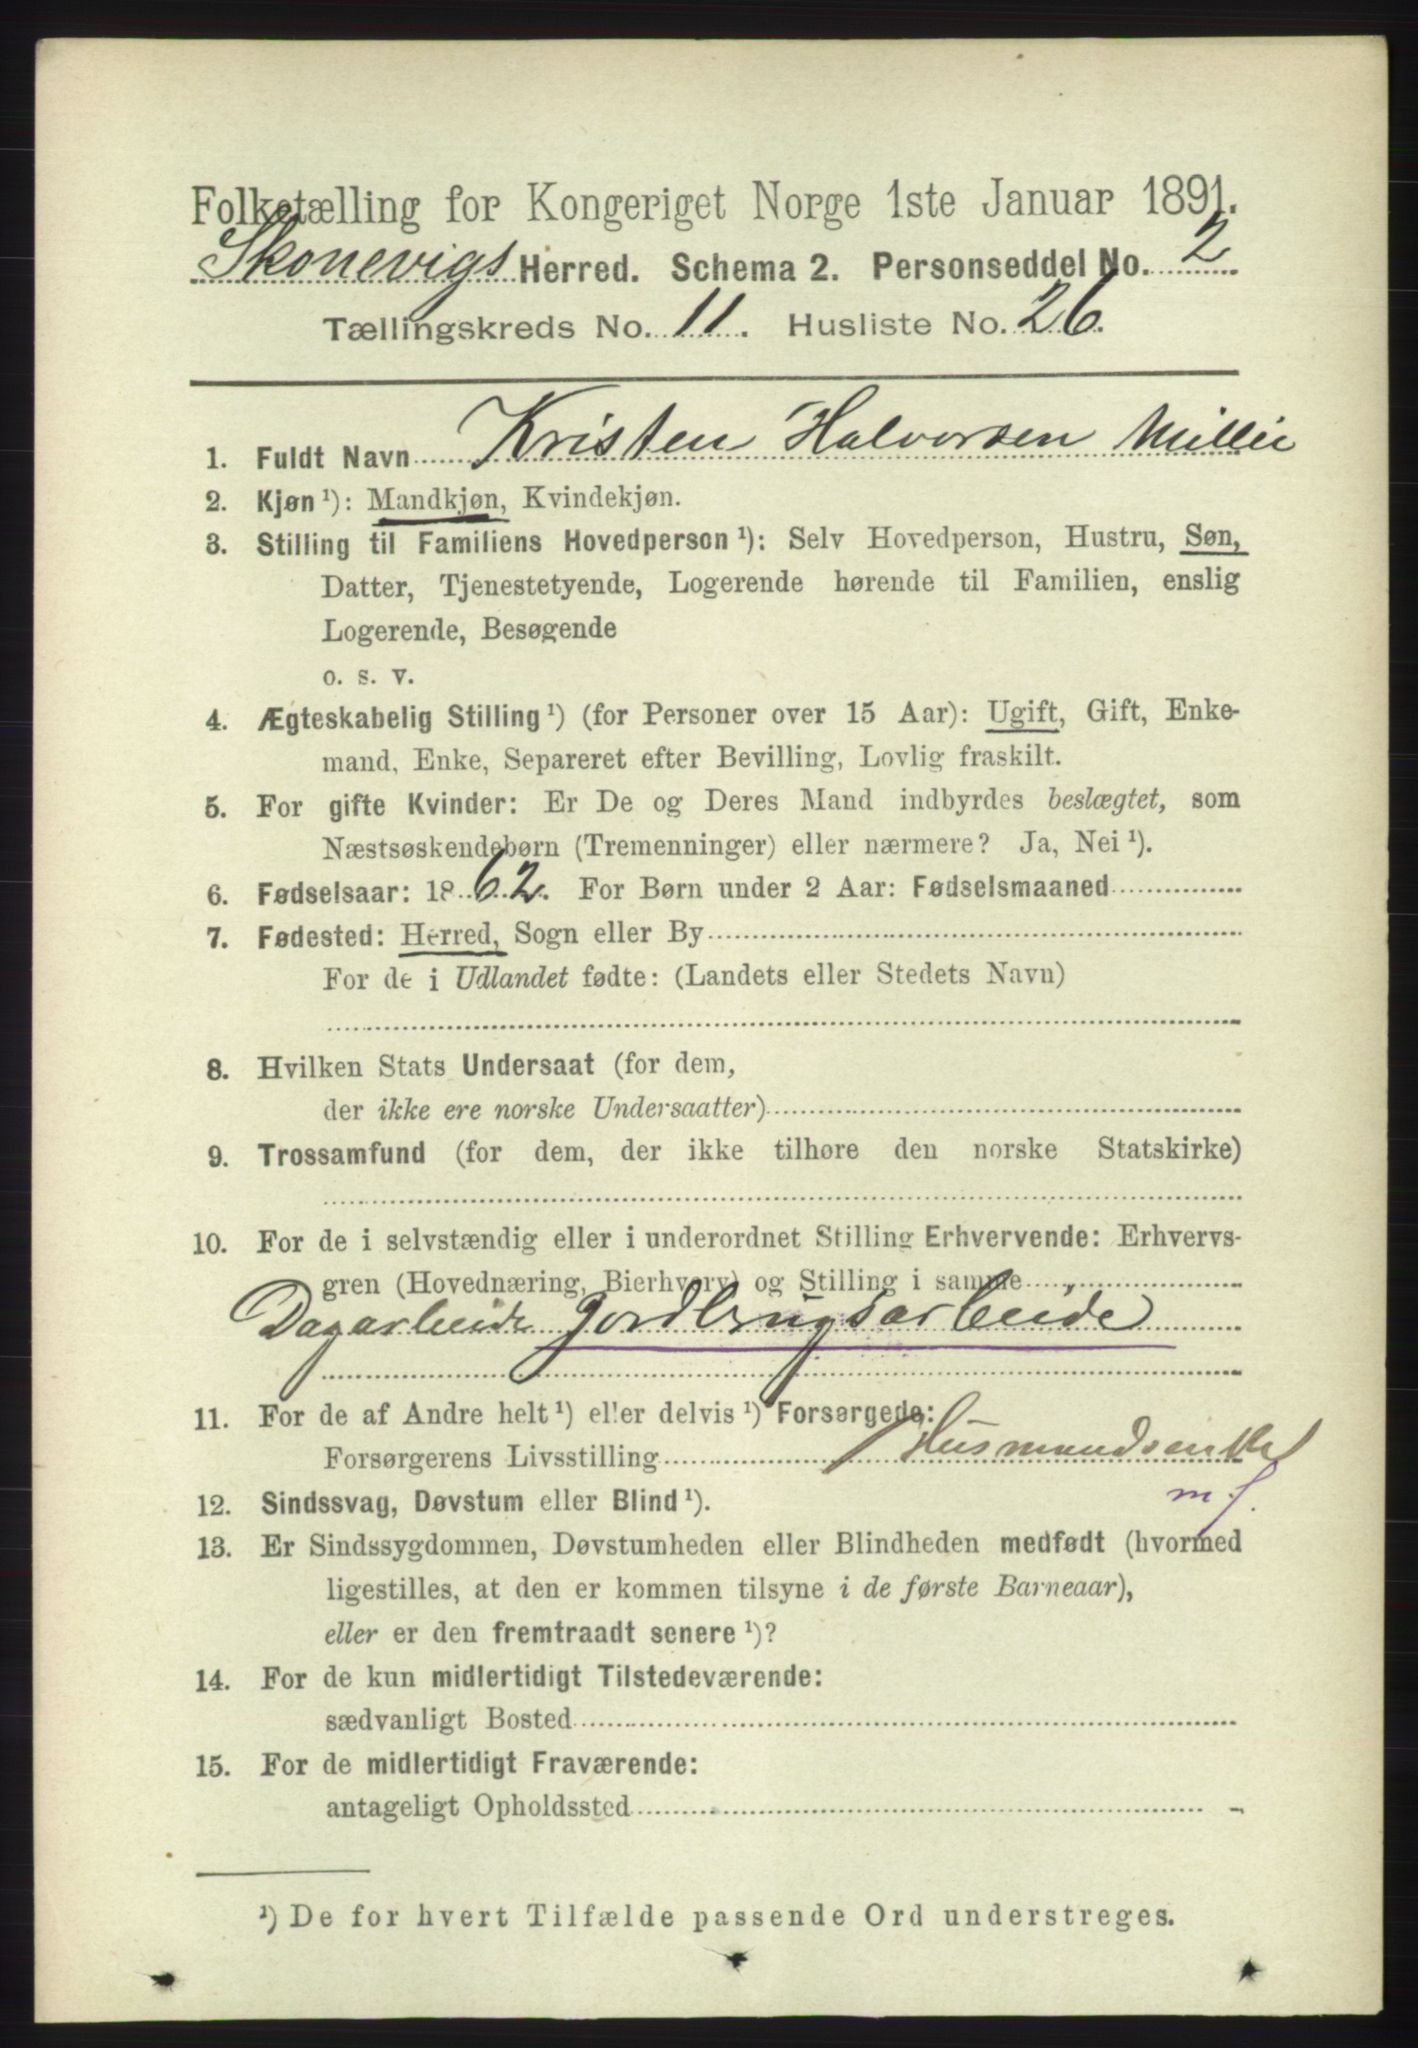 Folketælling for Kongeriget Norge 1ste Januar 1891.
Skonevigs Herred. Schema 2. Personseddel No. 2
Tællingskreds No. 11. Husliste No. 26.
1. Fuldt Navn Kristen Halvorsen
2. Kjøn ¹): Mandkjøn, Kvindekjøn.
3. Stilling til Familiens Hovedperson ¹): Selv Hovedperson, Hustru, Søn,
Datter, Tjenestetyende, Logerende hørende til Familien, enslig
Logerende, Besøgende
o. s. v.
4. Ægteskabelig Stilling ¹) (for Personer over 15 Aar): Ugift, Gift, Enke-
mand, Enke, Separeret efter Bevilling, Lovlig fraskilt.
5. For gifte Kvinder: Er De og Deres Mand indbyrdes beslægtet, som
Næstsøskendebørn (Tremenninger) eller nærmere? Ja, Nei ¹).
6. Fødselsaar: 1862. For Børn under 2 Aar: Fødselsmaaned
7. Fødested: Herred, Sogn eller By
For de i Udlandet fødte: (Landets eller Stedets Navn)
8. Hvilken Stats Undersaat (for dem,
der ikke ere norske Undersaatter)
9. Trossamfund (for dem, der ikke tilhøre den norske Statskirke)
10. For de i selvstændig eller i underordnet Stilling Erhvervende: Erhvervs-
gren (Hovednæring, Bierhverv) og Stilling i samme
Dagarbeide Jordbrugsarbeide
11. For de af Andre helt ¹) eller delvis ¹) Forsørgede:
Forsørgerens Livsstilling Husmandsenke
m. f.
12. Sindssvag, Døvstum eller Blind ¹).
13. Er Sindssygdommen, Døvstumheden eller Blindheden medfødt (hvormed
ligestilles, at den er kommen tilsyne i de første Barneaar),
eller er den fremtraadt senere ¹)?
14. For de kun midlertidigt Tilstedeværende:
sædvanligt Bosted
15. For de midlertidigt Fraværende:
antageligt Opholdssted
¹) De for hvert Tilfælde passende Ord understreges.